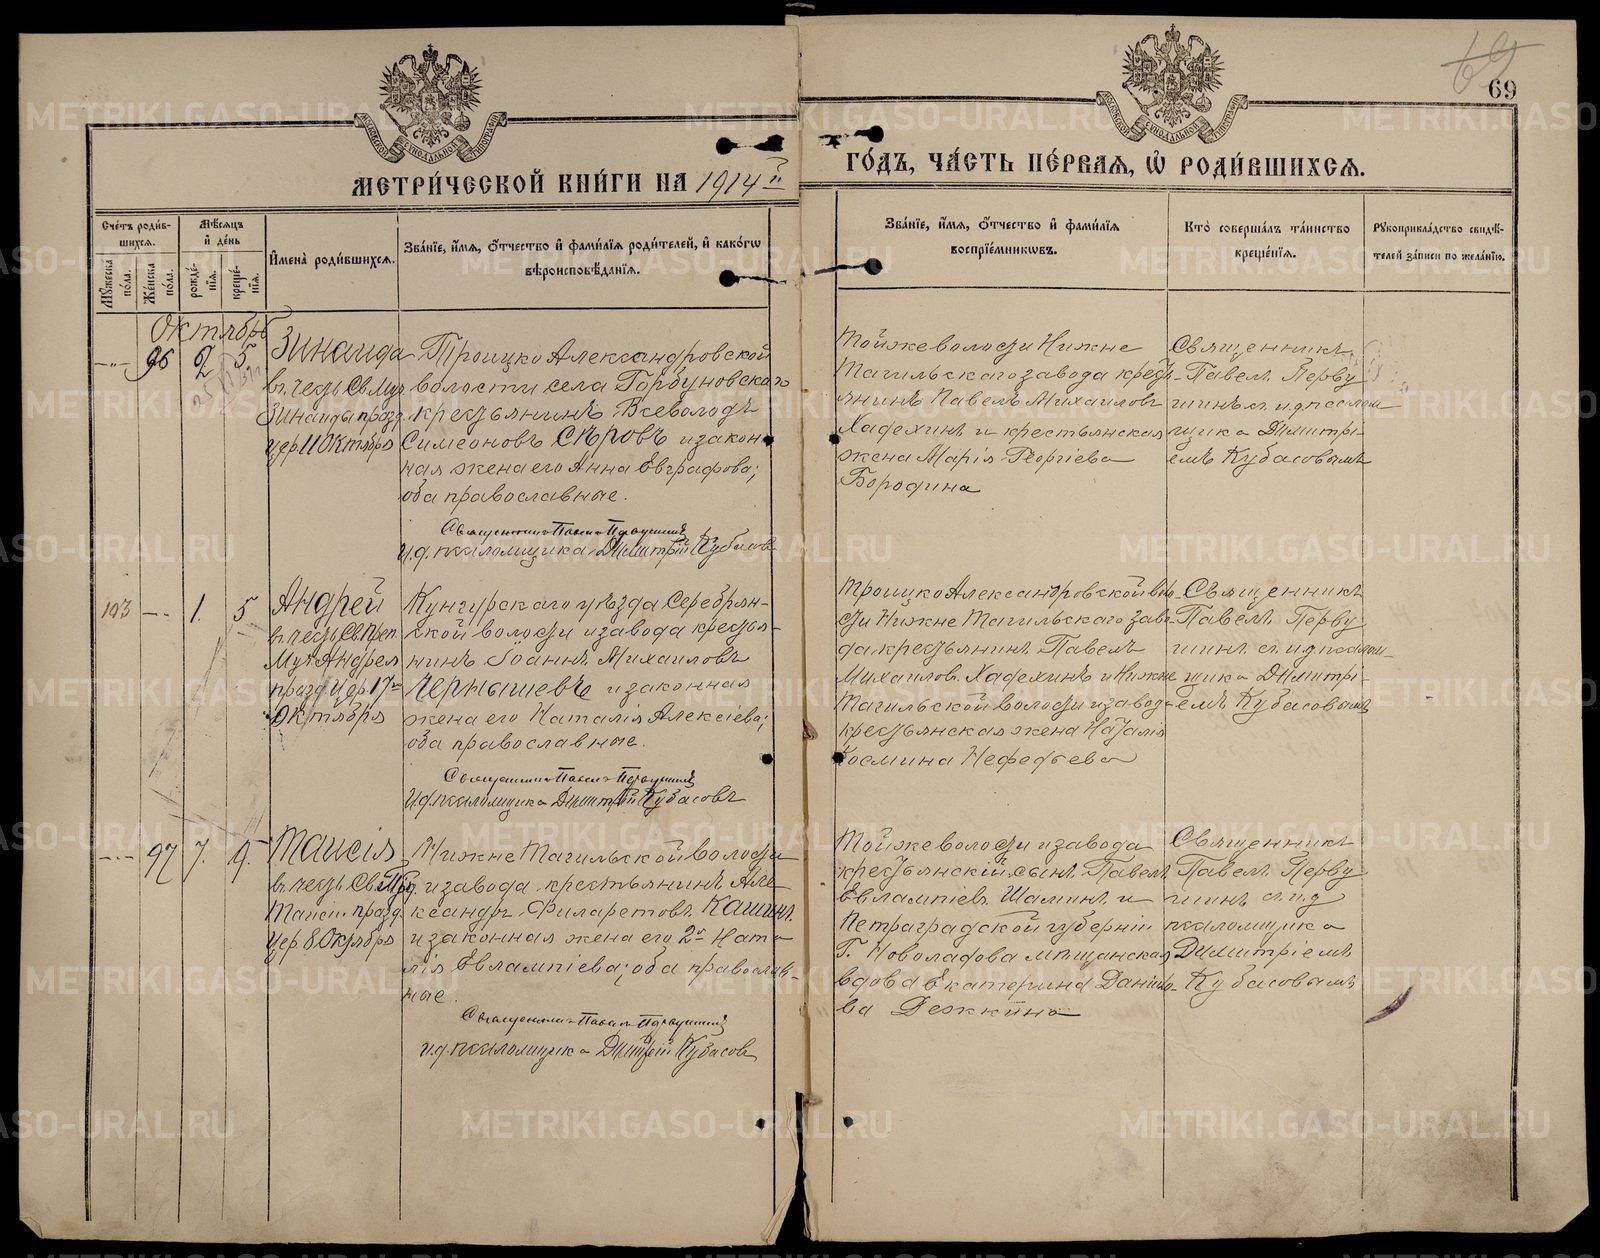 69
69
МЕТРИ́ЧЕСКОЙ КНИ́ГИ НА 1914й
ГО́ДЪ, ЧА́СТЬ ПЕ́РВАЯ, Ѡ҆ РОДИ́ВШИХСЯ.
Сче́тъ роди́в-
шихся.
Му́жеска по́ла.
Же́нска по́ла.
Мѣ́сяцъ
и҆ де́нь
рожде́нїя.
креще́нїя.
И҆мена̀ роди́вшихся.
Зва́нїе, и҆́мя, ѻ҆́тчество и҆ фами́лїя роди́телей, и҆ како́гѡ
вѣроисповѣ́данїя.
Зва́нїе, и҆́мя, ѻ҆́тчество и҆ фами́лїя
воспрїе́мниковъ.
Кто̀ соверша́лъ та́инство
креще́нїя.
Рукоприкла́дство свидѣ́-
телей за́писи по жела́нїю.
Октябрь
96
2
5
Зинаида
въ честь Св. Муч.
Зинаиды празд.
цер 11 Октября
Троицко Александровской
волости села Горбуновскаго
крестьянинъ Всеволодъ
Симеоновъ Сѣровъ и закон
ная жена его Анна Евграфова;
оба православные.
Священникъ Павелъ Первушинъ
и.д. псаломщика Димитрій Кубасовъ
Той же волости Нижне
Тагильскаго завода кресть-
янинъ Павелъ Михаиловъ
Хафехинъ и крестьянская
жена Марія Георгіева
Бородина
Священникъ
Павелъ Перву
шинъ съ и.д псалом
щика Димитрі-
емъ Кубасовымъ
103
1.
5
Андрей
въ честь Св. Преп
Муч Андрея
празд. цер. 17го
Октября
Кунгурскаго уѣзда Серебрян-
ской волости и завода кресть-
янинъ Іоаннъ Михаиловъ
Чернышевъ и законная
жена его Наталія Алексіева;
оба православные.
Священникъ Павелъ Первушинъ
И.д. псаломщика Димитрій Кубасовъ
Троицко Александровской воло-
сти Нижне Тагильскаго заво
да крестьянинъ Павелъ
Михаилов. Хафехинъ и Нижне
Тагильской волости и завода
крестьянская жена Наталія
Космина Нефедьева
Священникъ
Павелъ Перву
шинъ съ и.д псалом-
щика Димитрі-
емъ Кубасовымъ
97
7.
9.
Таисія
въ честь Св. Прп.
Таисіи празд.
цер. 8 Октября
Нижне Тагильской волости
и завода крестьянинъ Але
ксандръ Филаретовъ Кашинъ
и законная жена его 2я Ната
лія Евлампіева; оба православ-
ные.
Священникъ Павелъ Первушинъ
и.д. псаломщика Димитрій Кубасовъ
Той же волости и завода
крестьянскій сынъ Павелъ
Евлампіевъ Шаминъ и
Петраградской губерніи
Г. Новоладова мѣщанская
вдова Екатерина Данило-
ва Дежкина
Священникъ
Павелъ Перву
шинъ съ и.д
псаломщика
Димитріемъ
Кубасовымъ
METRIKI.GASO-URAL.RU